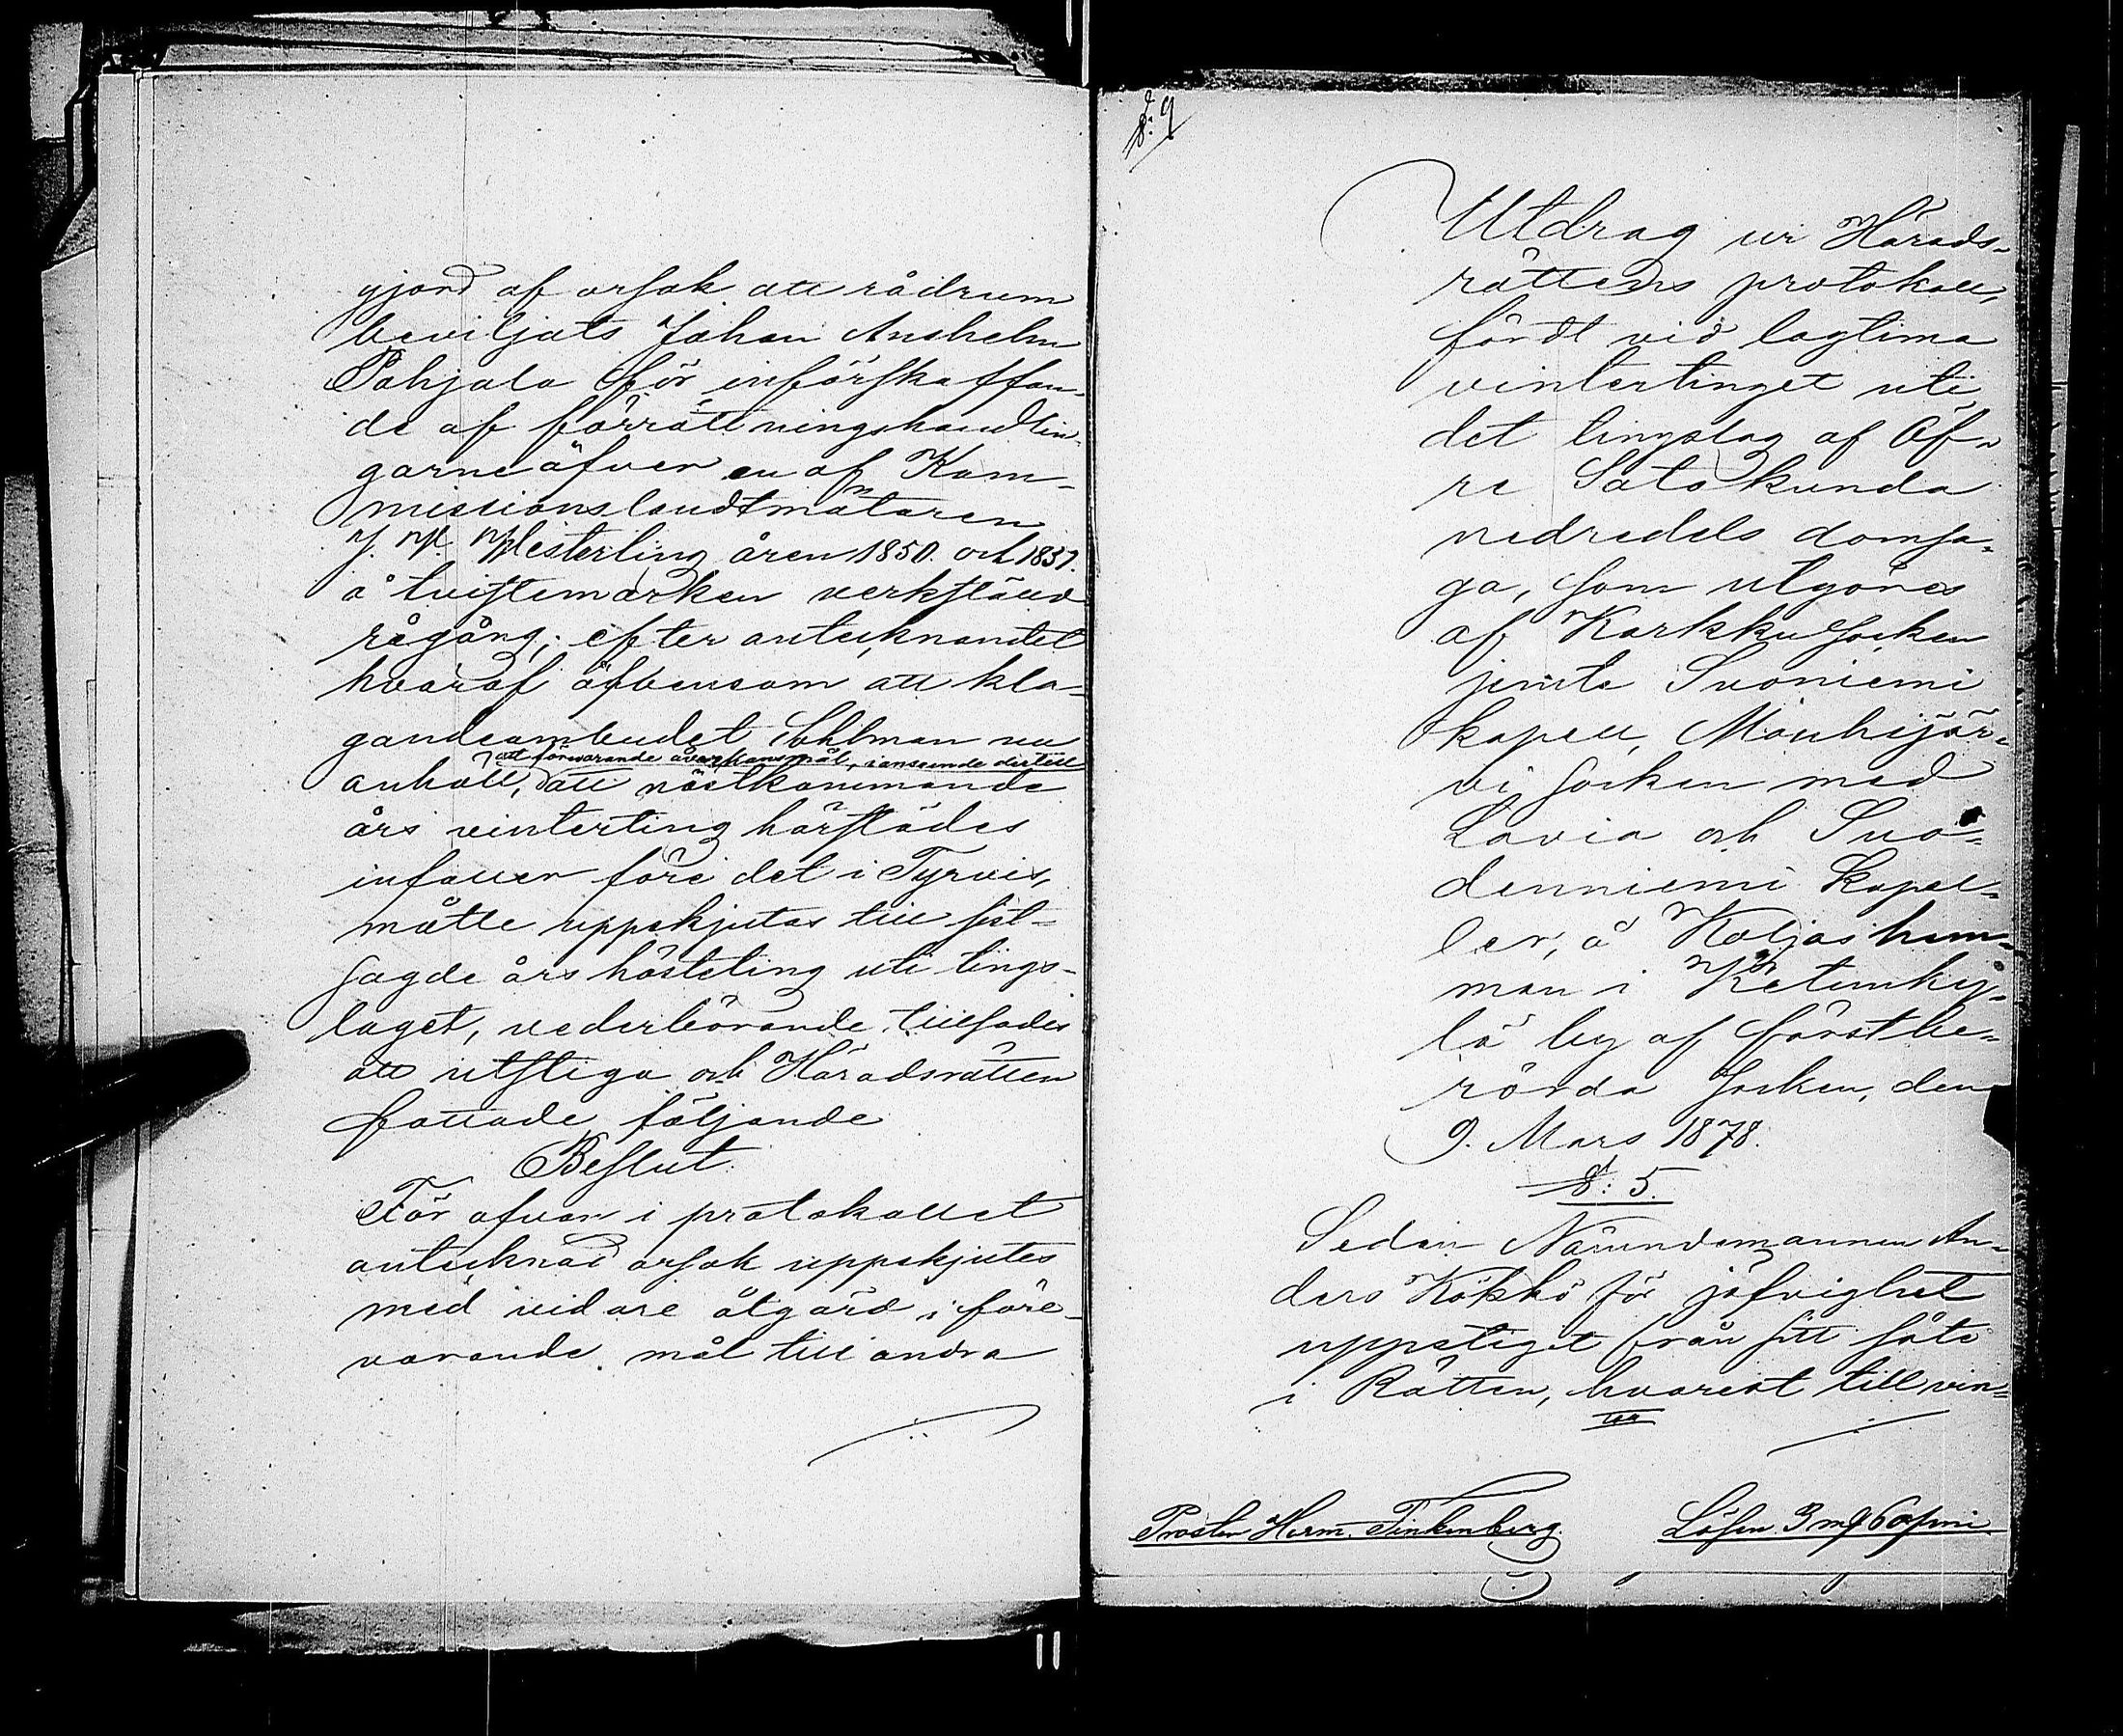 gjord af orsak att rådrum
beviljats Johan Anshelm
Pohjala för införskaffan-
de af förrättningshandlin-
garne öfver en af Kom-
missionslandtmätaren
J. W. Westerling åren 1850 och 1851
å tvistemarken verkstäld
rågång; efter antecknandet
hvaraf äfvensom att kla-
gandeombudet Sohlman nu
att förevarande åverkansmål, i anseende dertill
anhöll, att nästkommande
års vinterting härstädes
infaller före det i Tyrvis,
måtte uppskjutas till sist-
sagde års höstting uti tings-
laget, vederbörande tillsades
att utstiga och Häradsrätten
fattade följande
Beslut.
För ofvan i protokollet
antecknad orsak uppskjutes
med vidare åtgärd i före-
varande mål till andra
§: 9
Utdrag ur Härads-
rättens protokoll,
fördt vid lagtima
vintertinget uti
det tingslag af Öf-
re Satakunda
nedredels domsa-
ga, som utgöres
af Karkku socken
jemte Suoniemi
kapell, Mouhijär-
vi socken med
Lavia och Suo-
denniemi kapel-
ler, å Koljas hem-
man i Ketunky-
lä by af förstbe-
rörda socken, den
9. Mars 1878.
§: 5.
Sedan Nämndemannen An-
ders Kökkö för jäfvighet
uppstigit från sitt säte
i Rätten, hvarest till vin-
Prosten Herm. Finkenberg. Lösen 3 mk 60 pni